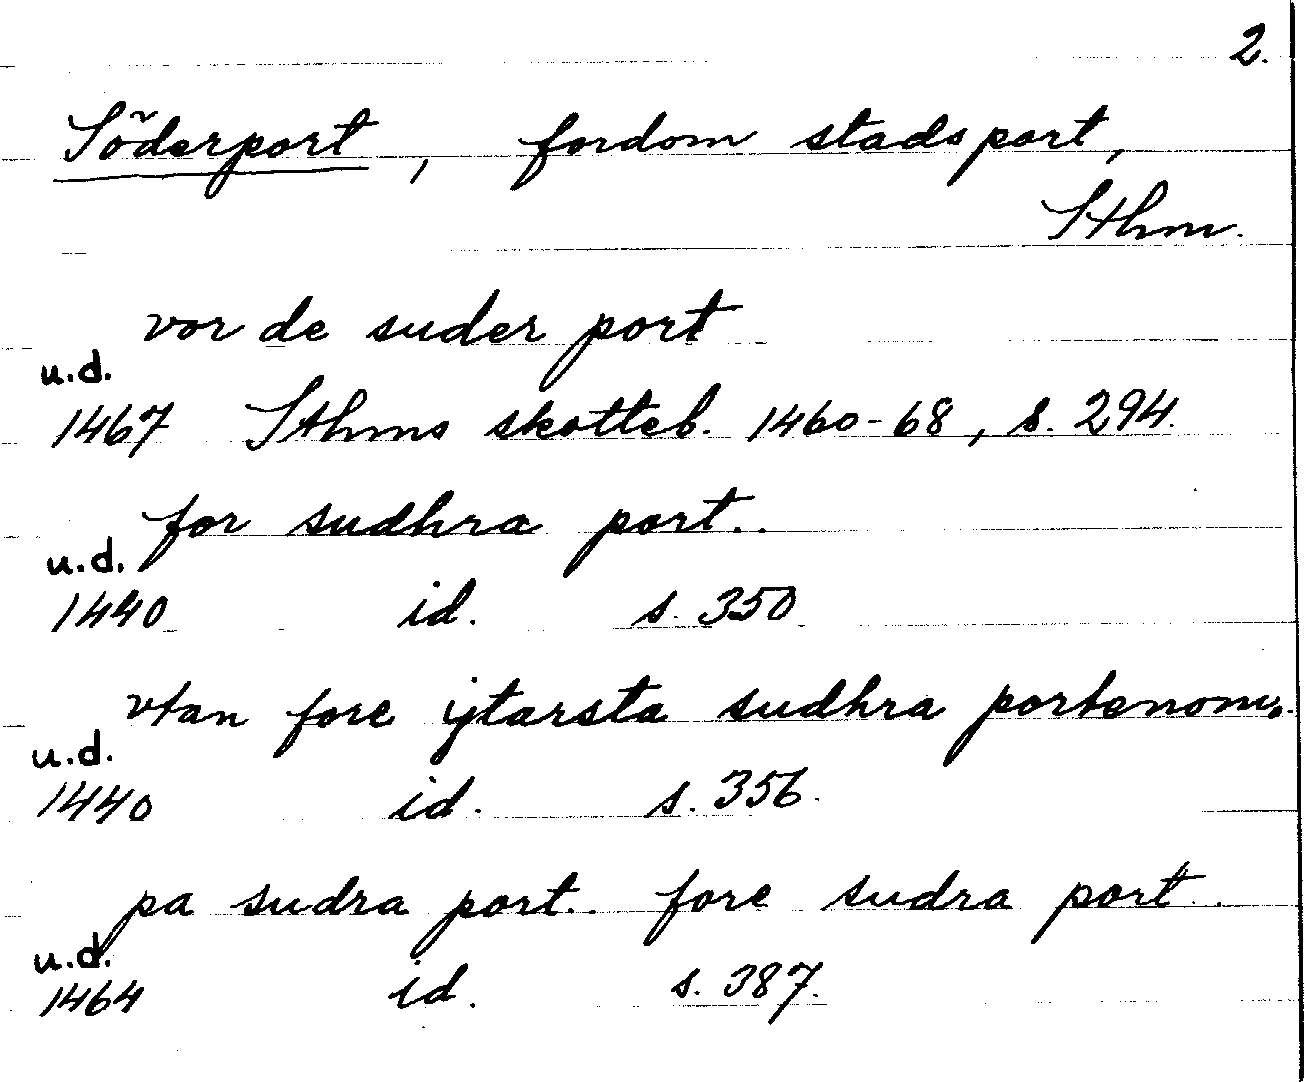 2.
Söderport, fordom stadsport,
Sthm.
vor de suder port
u.d.
1467 Sthms skotteb. 1460-68, s. 294.
for sudhra port..
u.d.
1440 id. s. 350
vtan fore ijtarsta sudhra portenom..
u.d.
1440 id. s. 356.
pa sudra port.. fore sudra port..
u.d.
1464 id. s. 387.